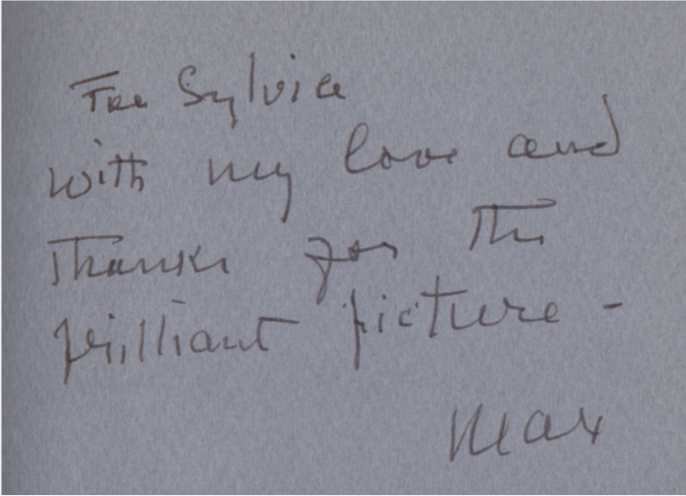 For Sylvia
with my love and
thanks for the
brilliant picture -
Max